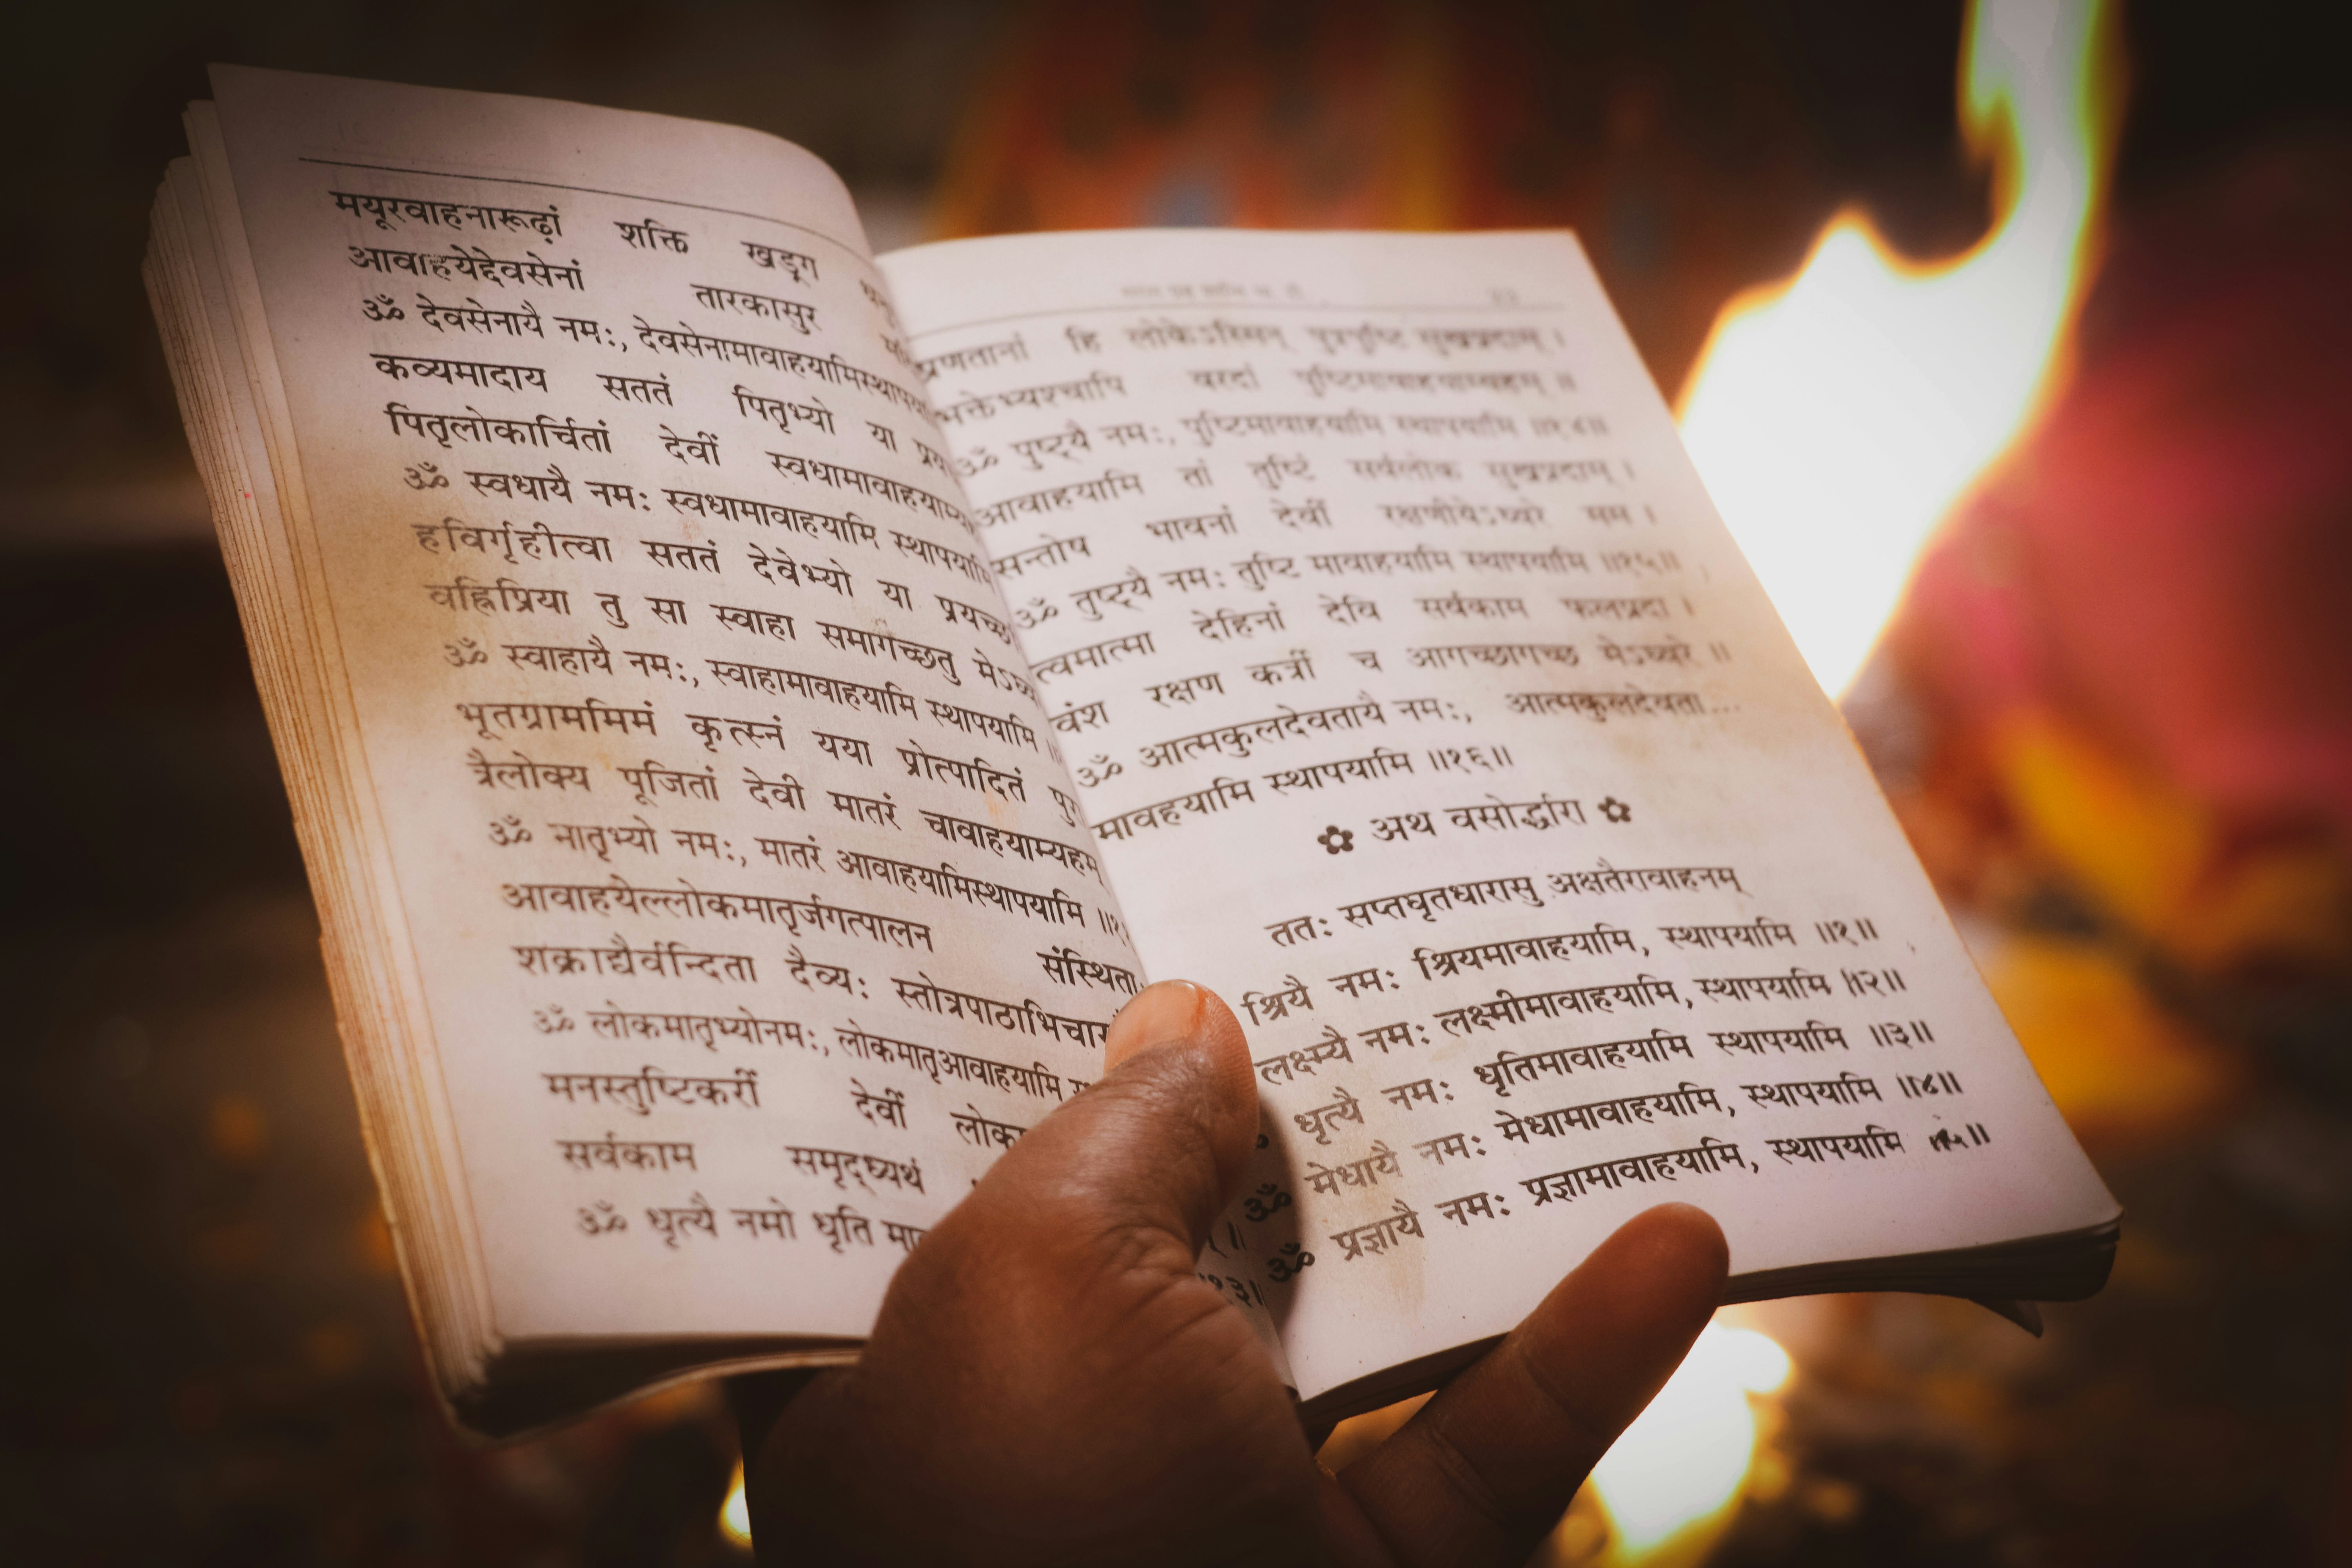 मयूरवाहनारूढ़ां शक्ति खड्ग
आवाहयेद्देवसेनां तारकासुर
ॐ देवसेनायै नमः, देवसेनामावाहयामिस्थापया
कव्यमादाय सततं पितृभ्यो या
पितृलोकार्चितां देवीं स्वधामावाहयाम्य
ॐ स्वधायै नमः स्वधामावाहयामि स्थापयामि
हविर्गृहीत्वा सततं देवेभ्यो या प्रयच्छ
वह्निप्रिया तु सा स्वाहा समागच्छतु
ॐ स्वाहायै नमः, स्वाहामावाहयामि स्थापयामि
भूतग्राममिमं कृत्स्नं यया प्रोत्पादितं
त्रैलोक्य पूजितां देवी मातरं चावाहयाम्यहम्
ॐ मातृभ्यो नमः, मातरं आवाहयामिस्थापयामि
आवाहयेल्लोकमातृर्जगत्पालन संस्थिता
शक्राद्यैर्वन्दिता दैव्यः
ॐ लोकमातृभ्योनमः, लोकमातृआवाहयामि
मनस्तुष्टिकरीं देवीं
सर्वकाम समृद्ध्यथं
ॐ धृत्यै नमो धृति
प्रणतानां हि लोकेऽस्मिन् पुत्रपुष्टि सुखप्रदाम् ।
भक्तेभ्यश्चापि वरदां पुष्टिमावाहयाम्यहम् ॥
ॐ पुष्ट्यै नमः, पुष्टिमावाहयामि स्थापयामि ॥१४॥
आवाहयामि तां तुष्टिं सर्वलोक सुखप्रदाम् ।
सन्तोष भावनां देवीं रक्षणीयेऽध्वरे मम ।
ॐ तुष्ट्यै नमः तुष्टि मावाहयामि स्थापयामि ॥१५॥
त्वमात्मा देहिनां देवि सर्वकाम फलप्रदा ।
वंश रक्षण कर्त्री च आगच्छागच्छ मेऽध्वरे ॥
ॐ आत्मकुलदेवतायै नमः, आत्मकुलदेवता...
मावहयामि स्थापयामि ॥१६॥
✿ अथ वसोर्द्धारा ✿
ततः सप्तघृतधारासु अक्षतैरावाहनम्
श्रियै नमः श्रियमावाहयामि, स्थापयामि ॥१॥
लक्ष्म्यै नमः लक्ष्मीमावाहयामि, स्थापयामि ॥२॥
धृत्यै नमः धृतिमावाहयामि स्थापयामि ॥३॥
ॐ मेधायै नमः मेधामावाहयामि, स्थापयामि ॥४॥
ॐ प्रज्ञायै नमः प्रज्ञामावाहयामि, स्थापयामि ॥५॥